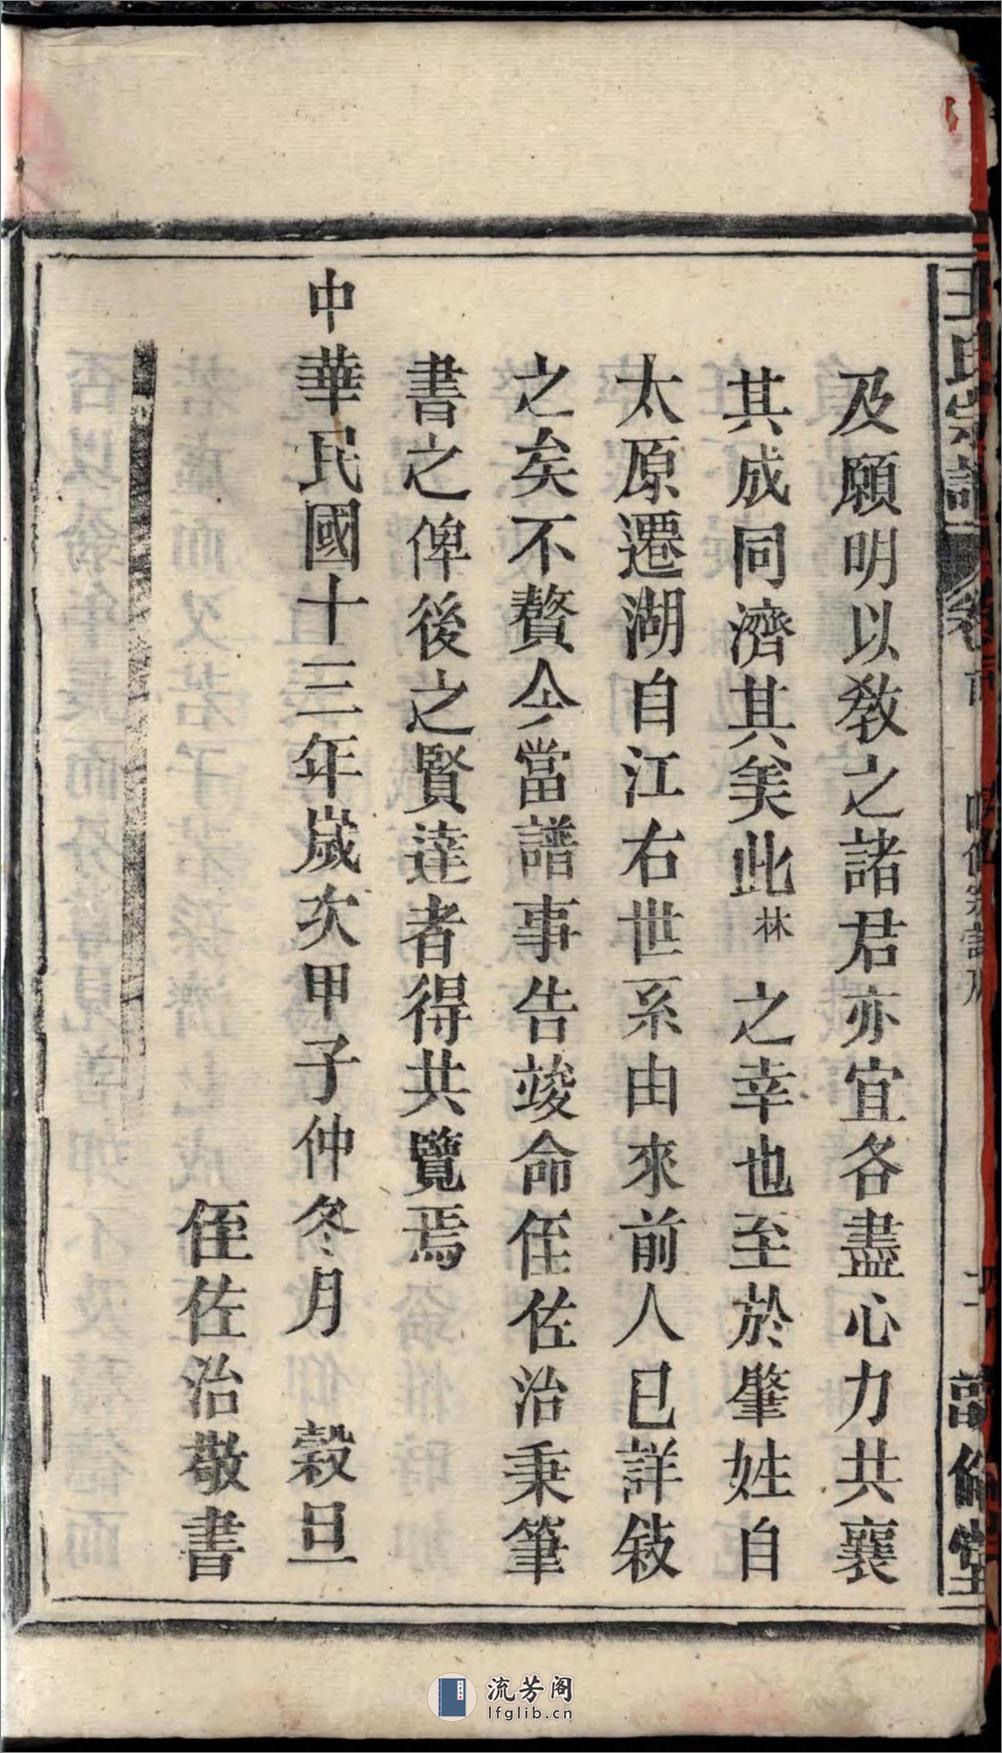 及願明以教之諸君亦宜各盡心力共襄
其成同濟其美此林之幸也至於肇姓自
太原遷湖自江右世系由來前人已詳敍
之矣不贅今當譜事告竣命侄佐治秉筆
書之俾後之賢達者得共覽焉
中華民國十三年歲次甲子仲冬月 穀旦
侄佐治敬書
王氏宗譜
流芳阁
lfglib.cn